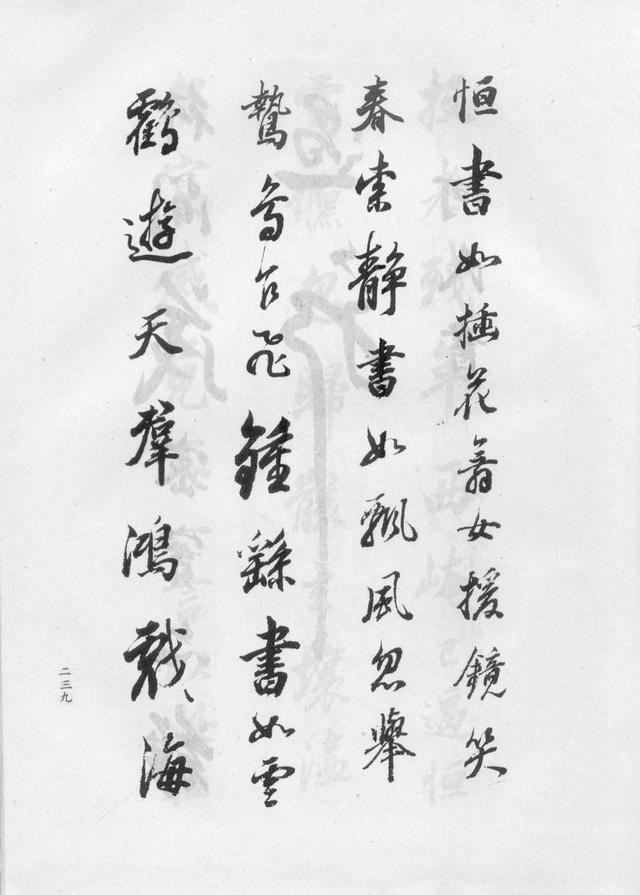 恒書如插花舞女援鏡笑
春索靜書如飄風忽舉
鷙鳥乍飛鍾繇書如雲
鶴遊天羣鴻戲海
二三九